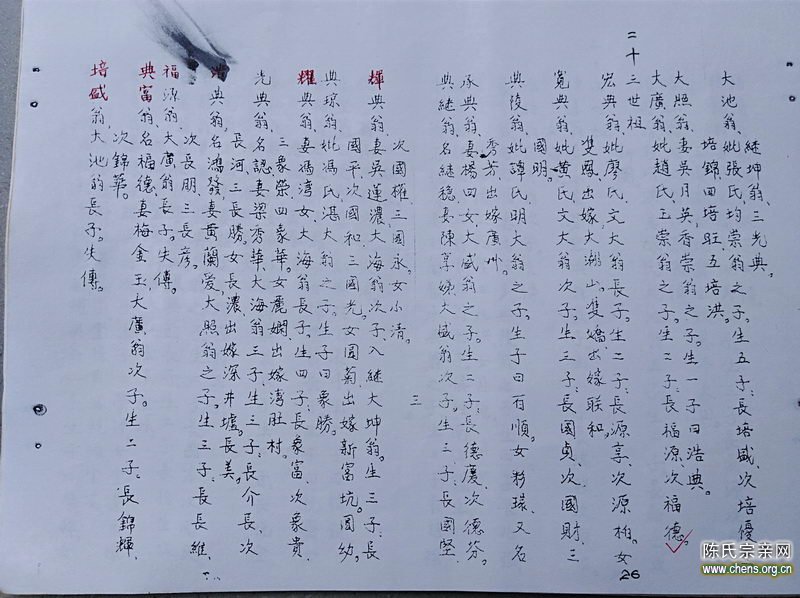 継坤翁、三光典。
大池翁妣張氏均崇翁之子生五子長培盛、次培優
培錦四培旺五培洪。
大照翁妻吳月英香崇翁之子。生一子曰浩典。
大廣翁妣趙氏玉崇翁之子。生二子長福源次福德。
二十三世祖
宏典翁妣廖氏文大翁長子。生二子長源享、次源柏。女
雙鳳出嫁大潮山。隻嬌出嫁聯和。
寬典翁妣黄氏文大翁次子。生三子長國貞、次國財、三
國明。
典後翁妣譚氏明大翁之子。生子曰有順。女彩環又名
秀芳出嫁廣州。
承典翁妻楊四女大威翁之子。生二子長德慶次德芬。
典継翁名継穏妻陳享娣大威翁次子。生三子長國堅、
三
次國權、三國永。女小清。
輝典翁妻吳蓮濃大海翁次子入継大坤翁。生三子長
國平次國和三國光女國菊出嫁新富坑。國幼。
典琼翁妣馮氏湛大翁之子。生子曰象勝。
耀典翁妻馮湾女大海翁長子。生四子長象富次象貴
三象榮四象華。女麗嫻出嫁湾肚村。
光典翁名認妻梁秀華大海翁三子生三子長介長、次
長河三長勝。女長濃出嫁深井墟。長美。
浩典翁名鴻發妻黄蘭愛大照翁之子。生三子長長維、
次長明三長彦。
福源翁大廣翁長子。失傳。
典富翁名福德妻梅金玉大廣翁次子。生二子長錦輝、
次錦華。
培盛翁大池翁長子。失傳。
26
陈氏宗亲网
www.chens.org.cn